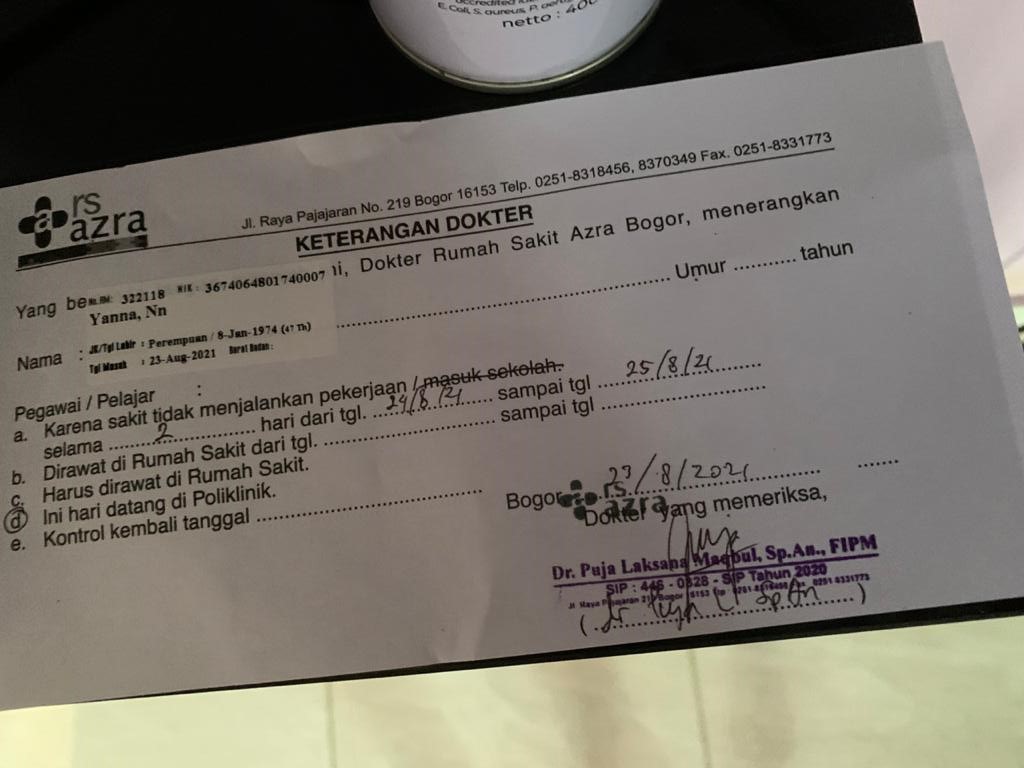 accredited
E. Coli, S. aureus, P.
netto : 400
rs
azra
Jl. Raya Pajajaran No. 219 Bogor 16153 Telp. 0251-8318456, 8370349 Fax. 0251-8331773
KETERANGAN DOKTER
Yang be ni, Dokter Rumah Sakit Azra Bogor, menerangkan
No.RM: 322118 NIK : 3674064801740007
Yanna, Nn
Nama : Umur .......... tahun
JK/Tgl Lahir : Perempuan / 8-Jan-1974 (47 Th)
Tgl Masuk : 23-Aug-2021 Berat Badan:
Pegawai / Pelajar :
a. Karena sakit tidak menjalankan pekerjaan / masuk sekolah.
selama 2 hari dari tgl. 24/8/21 sampai tgl 25/8/21
b. Dirawat di Rumah Sakit dari tgl. sampai tgl
c. Harus dirawat di Rumah Sakit.
d Ini hari datang di Poliklinik.
e. Kontrol kembali tanggal
Bogor 23/8/2021
rs
azra
Dokter yang memeriksa,
Dr. Puja Laksana Maqbul, Sp.An., FIPM
SIP : 446 - 0328 - SIP Tahun 2020
(dr Puja L SpAn)